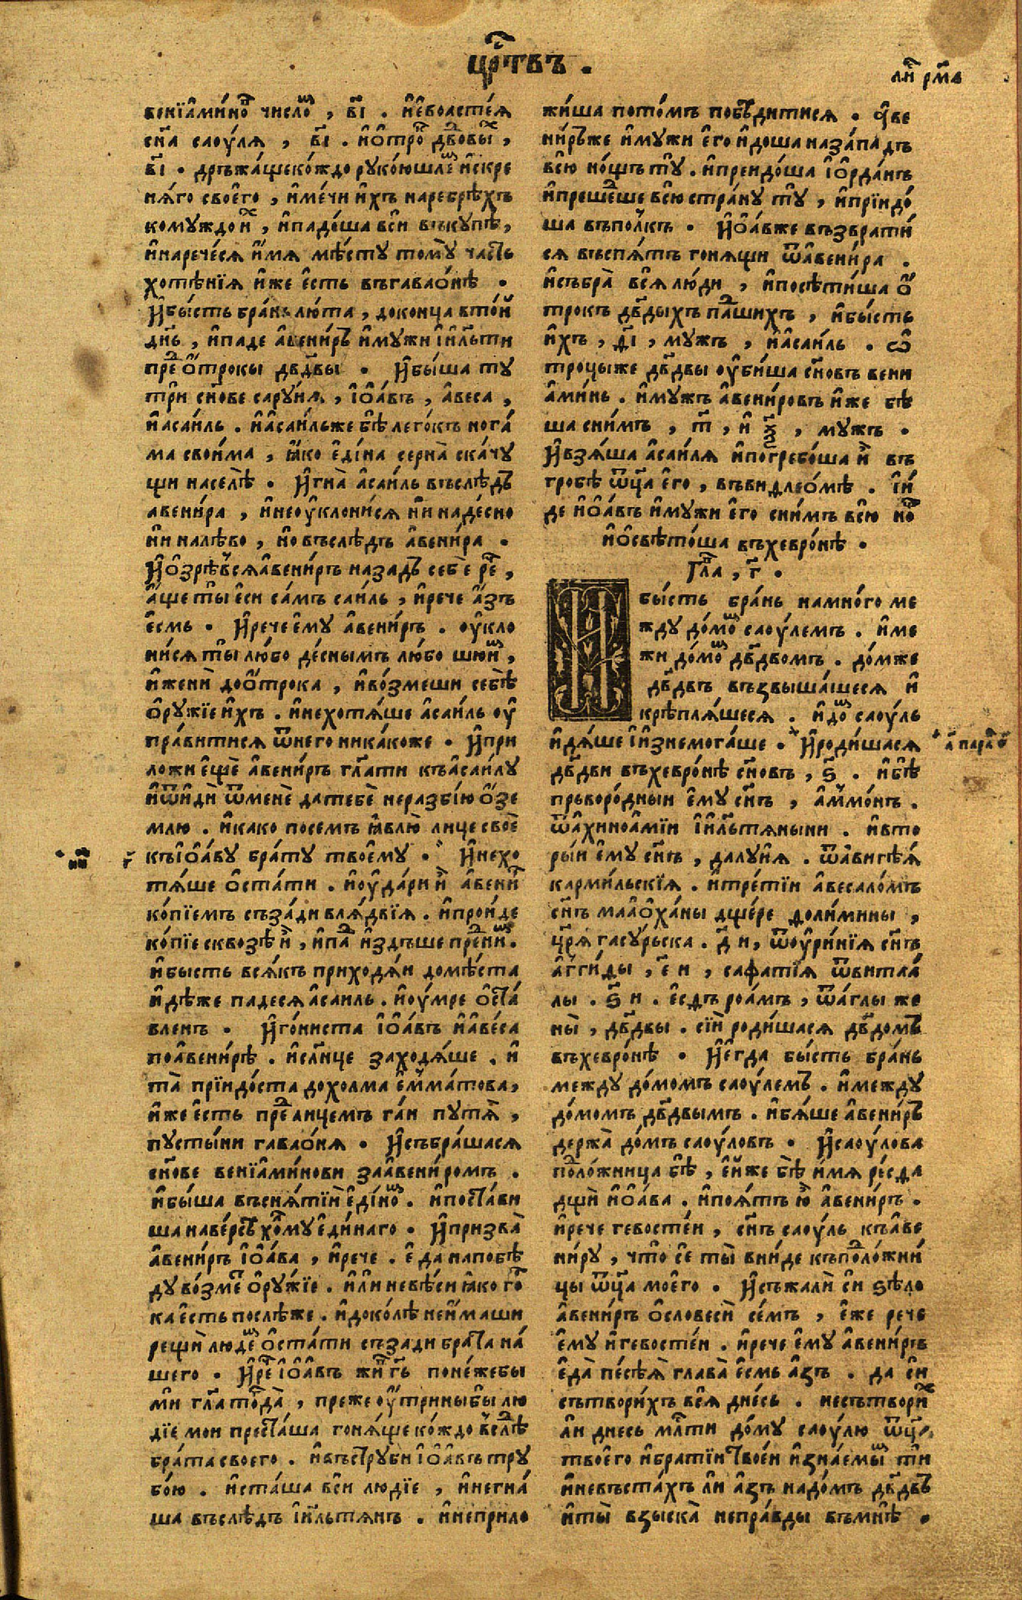 црⷭ҇твъ .
лиⷭ҇ рмв
венїами́ноⷨ число́ⷨ , в҃і . и҆евоѳее́ѧ
сн҃а саоу́лѧ , в҃і . ѿо҆́троⷦ҇ дв҃довы́ⷯ ,
в҃і . дръжа́щекождо рукою̀шлеⷨ и҆скре
нѧ́го свое́го , и҆ме́чи и҆́хъ наребрѣ́хъ
комуждои҆ⷯ , и҆падо́ша вси вꙿкупѣ ,
и҆нарече́сѧ и҆́мѧ мѣ́сту тому̀ ча́сть
хотѣ́нїѧ и҆́же є҆́сть въгавао́нѣ .
И҆бы́сть бра́нь лю́та , доконца втоⷨи
дн҃ь , и҆паде авени́ръ и҆мужи і҆и҃льти
преⷣ о҆́троки дв҃двы . И҆бы́ша ту
три сн҃ове сару́инѧ , і҆ѡ҆а́въ , а҆ве́са ,
и҆ асаи́ль . и҆аса́ильже бѣ̀ лего́къ нога́
ма свои́ма , ꙗ҆́ко є҆ди́на се́рна ска́чу
щи населѣ̀ . И҆гна̀ а҆саи́ль въслѣ́дъ
авени́ра , и҆неоу҆клони́сѧ ни́ надесно
ни́ налѣ́во , но въслѣ́дъ а҆вени́ра .
И҆озрѣ́всѧ а҆вени́ръ наза́дъ себѐ реⷱ҇ ,
а҆́ще ты́ еси са́мъ саи́ль , и҆рече а҆́зъ
є҆́смь . И҆рече є҆му а҆вени́ръ . оу҆кло
ни́сѧ ты̀ лю́бо де́снымъ лю́бо шю́иⷨ ,
и҆женѝ доо҆́трока , и҆во́змеши себѣ̀
о҆ру́жїе и҆́хъ . и҆нехотѧ́ше а҆саи́ль оу҆
пра́витисѧ ѿнего ника́коже . И҆при
ложи є҆щѐ а҆вени́ръ гл҃ати къасаи́лу
и҆ѿи́ди ѿменѐ датебѐ неразбїю ѡ҆зе
млю . и҆како посемъ ꙗ҆влю̀ ли́це своѐ
къі҆ѡ҆́аву бра́ту твоє́му . И҆нехо
тѧ́ше о҆ста́ти . и҆оу҆да́ри и҆̀ а҆вени́рⷬ҇
ко́пїемъ съза́ди влѧ́двїѧ . и҆про́йде
ко́пїе сквозѣ̀ и҆̀ , и҆паⷣ и҆́здъше преⷣниⷨ .
и҆бысть всѧ́къ приходѧ́и доме́ста
и҆дѣ́же паде́сѧ а҆саиль . и҆оу҆́мре о҆ста́
вленъ . И҆гониста і҆ѡ҆а́въ и҆а҆ве́са
поавени́рѣ . и҆сл҃нце заходѧ́ше . и҆
та̀ прїидо́ста дохолма є҆мма́това ,
и҆́же є҆́сть преⷣ лицемъ га́и путѧ̀ ,
пусты́ни гавао́нѧ . И҆събра́шасѧ
сн҃ове венїами́нови заавени́ромъ .
и҆бы́ша въснѧ́тїи є҆ди́ноⷨ . и҆поста́ви
ша наве́рсѣ хо́лму є҆ди́наго . И҆призва̀
а҆вени́ръ і҆ѡ҆а́ва , и҆рече . є҆да напобѣ́
ду во́змеⷮ о҆ру́жїе . и҆ли невѣ́си ꙗ҆ко гоⷬ҇
ка є҆́сть послѣ́же . и҆доко́лѣ не́имаши
рещѝ лю́деⷨ о҆ста́ти съза́ди бра́та на́
шего . И҆реⷱ҇ і҆ѡ҆а́въ жи́ⷡ гь҃ поне́жебы
ми гл҃а тогⷣа , преже оу҆́триныбы лю
дїе мои преста́ша гонѧ́ще ко́ждо всле́ⷣ
бра́та своего . и҆въструби і҆ѡ҆а́въ тру
бо́ю . и҆ста́ша вси лю́дїе , и҆негна́
ша въслѣ́дъ і҆и҃льтѧ́нъ . и҆неприло
жи́ша пото́мъ побѣди́тисѧ . а҆́ве
ни́ръже и҆му́жи є҆го и҆доша на за́падъ
всю но́щь ту̀ . и҆преидо́ша і҆ѡ҆рда́нъ
и҆преше́ⷣше всю страну̀ ту̀ , и҆прїидо́
ша въпо́лкъ . И҆ѡ҆а́вже възврати́
сѧ въспѧ́ть гонѧ́щи ѿавени́ра .
и҆събра̀ всѧ лю́ди , и҆посѣти́ша ѿ
трокъ дв҃дыхъ па́ⷣшихъ , и҆бы́сть
и҆́хъ , д҃і , му́жъ , и҆аса́иль . ѡ
троцыже дв҃двы оу҆би́ша сн҃овъ вени
а҆минь . и҆му́жъ а҆вени́ровъ и҆же бѣ
ша сни́мъ , т҃ , и҆ ѯ҃ , му́жъ .
И҆взѧ́ша а҆са́илѧ и҆погребо́ша и҆̀ въ
гробѣ̀ ѿц҃а є҆го , въвиѳлео́мѣ . і҆и́
де и҆ѡ҆а́въ и҆му́жи є҆го сни́мъ всю но́ⷳ
и҆о҆свѣто́ша въхевро́нѣ .
Глⷡ҇а , г҃ .
И҆бы́сть бра́нь намно́го ме
жду до́моⷨ саоу́лемъ . и҆ме
жи до́моⷨ дв҃двомъ . до́мже
дв҃двъ възвыша́шесѧ и҆
крѣплѧ́шесѧ . и҆дом́ⷨ саоу́ль
и҆дѧ́ше і҆изнемога́ше . И҆роди́шасѧ
а҃ пар г҃
дв҃дви въхевро́нѣ сн҃овъ , ѕ҃ . и҆бѣ̀
прьворо́дныи є҆му сн҃ъ , а҆ммо́нъ .
ѿахиноа́мїи і҆и҃льтѧныни . и҆вто
ры́и є҆му сн҃ъ , далуїѧ . ѿавигїѧ
карми́льскїѧ . и҆тре́тїи а҆весало́мъ
сн҃ъ маао҆ха́ны дще́ре долими́ны ,
цр҃ѧ гасу́рьска . д҃ и , ѿоу҆рни́їѧ сн҃ъ
а҆гги́ды , є҃ и , сафати́ѧ ѿвитаа́
лы . ѕ҃ и . є҆съ роа́мъ , ѿаглы же
ны̀ , дв҃двы . сїѝ роди́шасѧ дв҃домъ
въхевро́нѣ . И҆є҆гда бы́сть бра́нь
между до́момъ саоу́лемъ . и҆между
до́момъ дв҃двымъ . и҆бѧ́ше а҆вени́ръ
держа̀ до́мъ саоу́ловъ . И҆саоу́лова
поⷣло́жница бѣ̀ , є҆и́же бѣ̀ и҆́мѧ ре́сѳа
дщѝ и҆ѡ҆́ава . и҆поѧ́тъ ю҆̀ а҆вени́ръ .
и҆рече гевосѳе́и , сн҃ъ саоу́ль къаве
ни́ру , что̀ се ты̀ вни́де къпоⷣло́жни
цы ѿц҃а моего . И҆съжалѝ си ѕѣло
а҆вени́ръ о҆словесѝ се́мъ , є҆же рече
є҆му и҆гевосѳе́и . и҆рече є҆му а҆вени́ръ
є҆да̀ пе́сїѧ глава̀ є҆смь а҆зъ . да си
сътвори́хъ всѧ дне́сь . несътвори́ⷯ
ли днесь мл҃ти до́му саоу́лю ѿц҃у
твоего и҆братїи твое́и и҆зна́емыⷨ ти
и҆невѣста́хъ ли а҆зъ надо́мъ дв҃двъ
и҆ты̀ взыска̀ непра́вды въмнѣ .